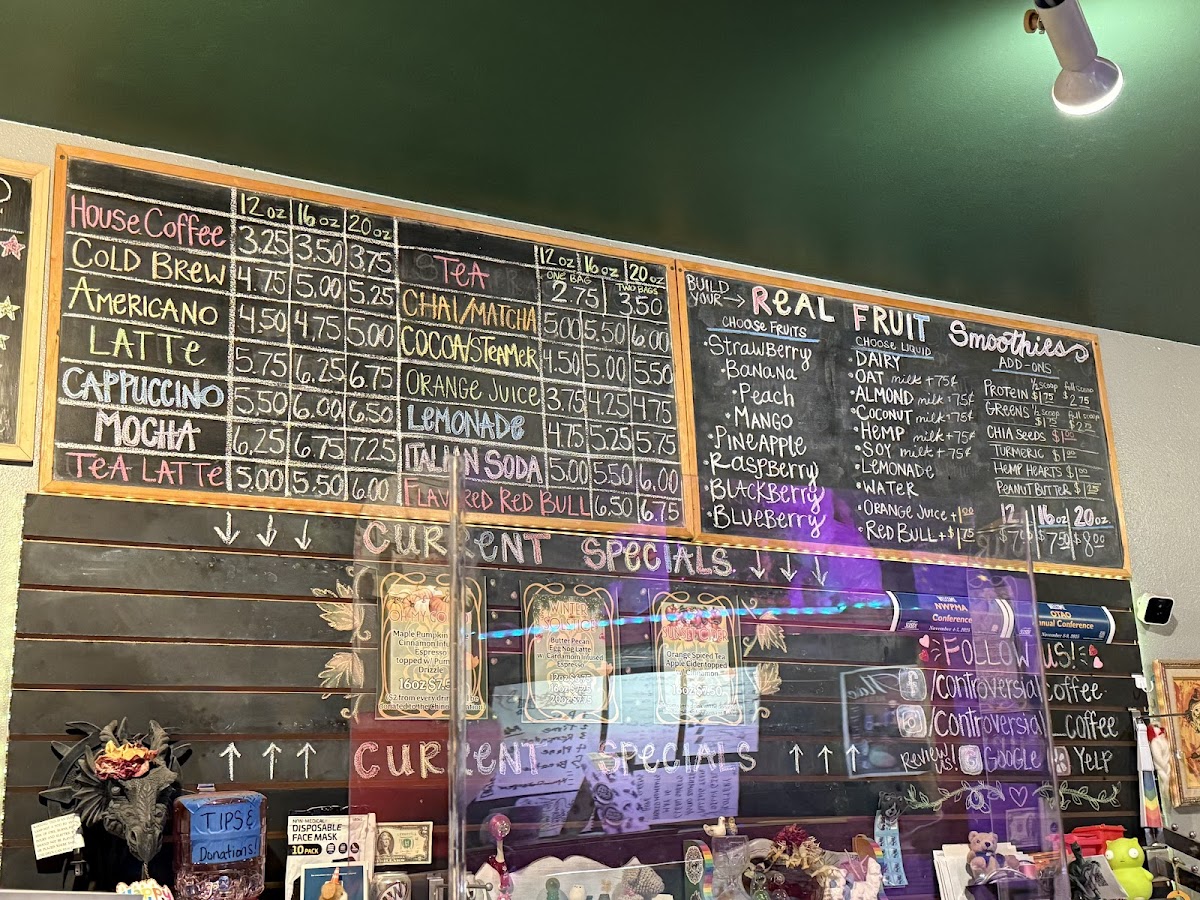 12 oz 16 oz 20 oz
House Coffee 3.25 3.50 3.75
Cold Brew 4.75 5.00 5.25
Americano 4.50 4.75 5.00
Latte 5.75 6.25 6.75
Cappuccino 5.50 6.00 6.50
Mocha 6.25 6.75 7.25
Tea Latte 5.00 5.50 6.00
12 oz 16 oz 20 oz
Tea one bag 2.75 two bags 3.50
Chai/Matcha 5.00 5.50 6.00
Cocoa/Steamer 4.50 5.00 5.50
Orange Juice 3.75 4.25 4.75
Lemonade 4.75 5.25 5.75
Italian Soda 5.00 5.50 6.00
Flavored Red Bull 6.50 6.75
Build your → Real Fruit Smoothies
Choose Fruits
• Strawberry
• Banana
• Peach
• Mango
• Pineapple
• Raspberry
• Blackberry
• Blueberry
Choose Liquid
• Dairy
• Oat milk +75¢
• Almond milk +75¢
• Coconut milk +75¢
• Hemp milk +75¢
• Soy milk +75¢
• Lemonade
• Water
• Orange Juice + 1.00
• Red Bull + $1.75
Add-ons
Protein ½ scoop $1.75 full scoop $2.75
Greens ½ scoop $1.75 full scoop $2.75
Chia Seeds $1.00
Turmeric $1.00
Hemp Hearts $1.00
Peanut Butter $1.25
12 16 oz 20 oz
$7.50 $8.00
Current Specials
Maple Pumpkin
Cinnamon Infused
Espresso
topped w/
Drizzle
16oz
Winter
Solstice
Butter Pecan
Egg Nog Latte
w/ Cardamom Infused
Espresso
Orange Spiced Tea
Apple Cider topped
Cinnamon
Welcome
NWPMA
Conference
Welcome
OTAO
Annual Conference
Follow us!
/controversial coffee
/controversial_coffee
Review us! Google Yelp
Current Specials
Tips &
Donations!
Non-Medical
Disposable
Face Mask
10 Pack